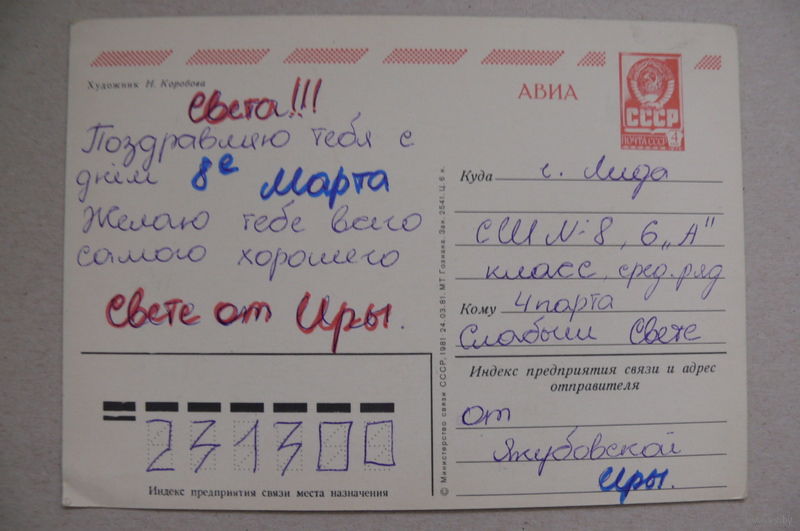 Художник Н. Коробова
Света!!!
Поздравляю тебя с
днём 8е Марта
Желаю тебе всего
самого хорошего
Свете от Иры.
231300
Индекс предприятия связи места назначения
© Министерство связи СССР, 1981 24.03.81. МТ Гознака. Зак. 2541. Ц. 6 к.
АВИА
СССР
ПОЧТА СССР 4
Куда г. Лида
СШ N-8, 6 „А"
класс, сред. ряд
Кому 4 парта
Слабыш Свете
Индекс предприятия связи и адрес
отправителя
от
Якубовской
Иры.